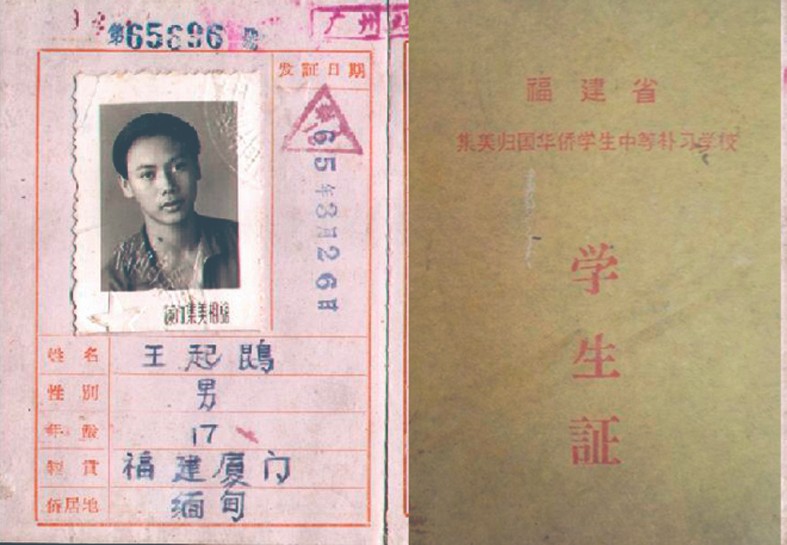 第65696号
广州
发証日期
65年3月26日
厦门集美相舘
姓名 王起鵾
性別 男
年龄 17
籍貫 福建厦门
侨居地 缅甸
福建省
集美归国华侨学生中等补习学校
学生証